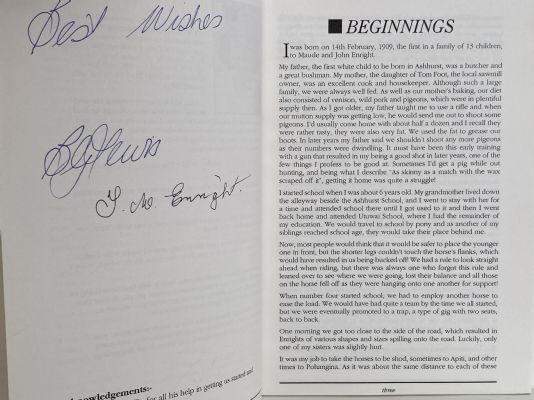 Best Wishes
T. M. Enright.
knowledgements:-
for all his help in getting us started and
BEGINNINGS
I was born on 14th February, 1909, the first in a family of 13 children,
to Maude and John Enright.
My father, the first white child to be born in Ashhurst, was a butcher and
a great bushman. My mother, the daughter of Tom Foot, the local sawmill
owner, was an excellent cook and housekeeper. Although such a large
family, we were always well fed. As well as our mother's baking, our diet
also consisted of venison, wild pork and pigeons, which were in plentiful
supply then. As I got older, my father taught me to use a rifle and when
our mutton supply was getting low, he would send me out to shoot some
pigeons. I'd usually come home with about half a dozen and I recall they
were rather tasty, they were also very fat. We used the fat to grease our
boots. In later years my father said we shouldn't shoot any more pigeons
as their numbers were dwindling. It must have been this early training
with a gun that resulted in my being a good shot in later years, one of the
few things I profess to be good at. Sometimes I'd get a pig while out
hunting, and being what I describe "As skinny as a match with the wax
scraped off it", getting it home was quite a struggle!
I started school when I was about 6 years old. My grandmother lived down
the alleyway beside the Ashhurst School, and I went to stay with her for
a time and attended school there until I got used to it and then I went
back home and attended Utuwai School, where I had the remainder of
my education. We would travel to school by pony and as another of my
siblings reached school age, they would take their place behind me.
Now, most people would think that it would be safer to place the younger
one in front, but the shorter legs couldn't touch the horse's flanks, which
would have resulted in us being bucked off! We had a rule to look straight
ahead when riding, but there was always one who forgot this rule and
leaned over to see where we were going, lost their balance and all those
on the horse fell off as they were hanging onto one another for support!
When number four started school, we had to employ another horse to
ease the load. We would have had quite a team by the time we all started,
but we were eventually promoted to a trap, a type of gig with two seats,
back to back.
One morning we got too close to the side of the road, which resulted in
Enrights of various shapes and sizes spilling onto the road. Luckily, only
one of my sisters was slightly hurt.
It was my job to take the horses to be shod, sometimes to Apiti, and other
times to Pohangina. As it was about the same distance to each of these
three